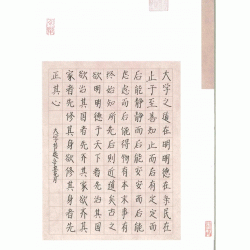 大学之道在明明德在亲民在
止于至善知止而后有定定而
后能静静而后能安安而后能
虑虑而后能得物有本末事有
终始知所先后则近道矣古之
欲明明德于天下者先治其国
欲治其国者先齐其家欲齐其
家者先修其身欲修其身者先
正其心